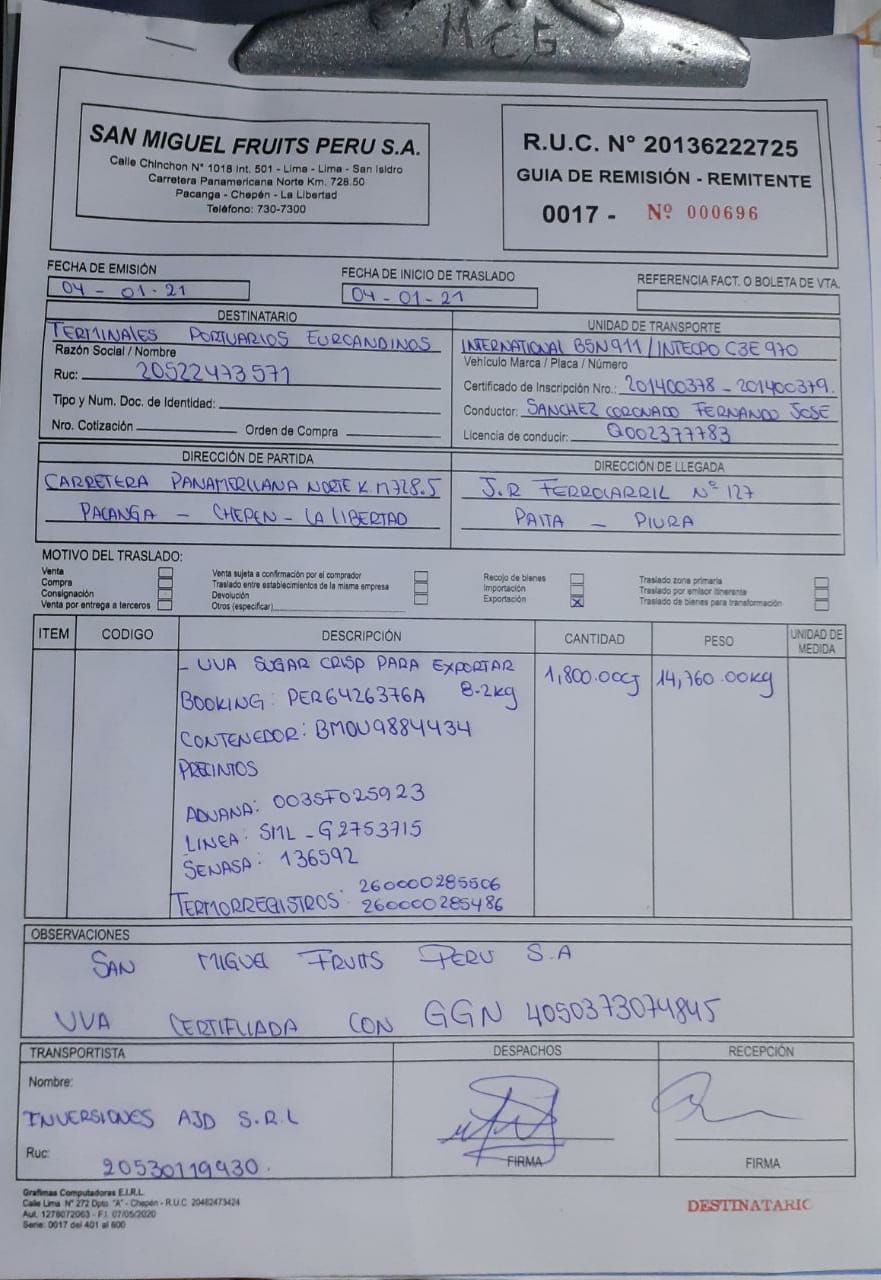 MCG
SAN MIGUEL FRUITS PERU S.A.
Calle Chinchon N° 1018 Int. 501 - Lima - Lima - San Isidro
Carretera Panamericana Norte Km. 728.50
Pacanga - Chepén - La Libertad
Teléfono: 730-7300
R.U.C. N° 20136222725
GUIA DE REMISIÓN - REMITENTE
0017 - Nº 000696
FECHA DE EMISIÓN
04 - 01 - 21
FECHA DE INICIO DE TRASLADO
04 - 01 - 21
REFERENCIA FACT. O BOLETA DE VTA.
DESTINATARIO
TERMINALES PORTUARIOS EUROANDINOS
Razón Social / Nombre
Ruc: 20522473571
Tipo y Num. Doc. de Identidad:
Nro. Cotización Orden de Compra
UNIDAD DE TRANSPORTE
INTERNATIONAL B5N911 / INTECPO C3E 970
Vehículo Marca / Placa / Número
Certificado de Inscripción Nro.: 201400378 - 201400379.
Conductor: SANCHEZ CORONADO FERNANDO JOSE
Licencia de conducir: Q002377783
DIRECCIÓN DE PARTIDA
CARRETERA PANAMERICANA NORTE K.M728.5
PACANGA - CHEPEN - LA LIBERTAD
DIRECCIÓN DE LLEGADA
J.R FERROCARRIL Nº 127
PAITA - PIURA
MOTIVO DEL TRASLADO:
Venta
Compra
Consignación
Venta por entrega a terceros
Venta sujeta a confirmación por el comprador
Traslado entre establecimientos de la misma empresa
Devolución
Otros (especificar)
Recojo de bienes
Importación
Exportación X
Traslado zona primaria
Traslado por emisor itinerante
Traslado de bienes para transformación
ITEM CODIGO DESCRIPCIÓN CANTIDAD PESO UNIDAD DE MEDIDA
- UVA SUGAR CRISP PARA EXPORTAR 1,800.00CJ 14,760.00kg
BOOKING: PER6426376A 8.2kg
CONTENEDOR: BMOU9884434
PRECINTOS
ADUANA: 003SF025923
LINEA: SML - G2753715
SENASA: 136592
TERMORREGISTROS: 260000285506
260000285486
OBSERVACIONES
SAN MIGUEL FRUITS PERU S.A
UVA CERTIFICADA CON GGN 4050373074845
TRANSPORTISTA
Nombre:
INVERSIONES AJD S.R.L
Ruc:
20530119930.
DESPACHOS
FIRMA
RECEPCIÓN
FIRMA
Grafimas Computadoras E.I.R.L.
Calle Lima N° 272 Dpto. "A" - Chepén - R.U.C. 20482473424
Aut. 1278072063 - F.I. 07/05/2020
Serie: 0017 del 401 al 600
DESTINATARIO